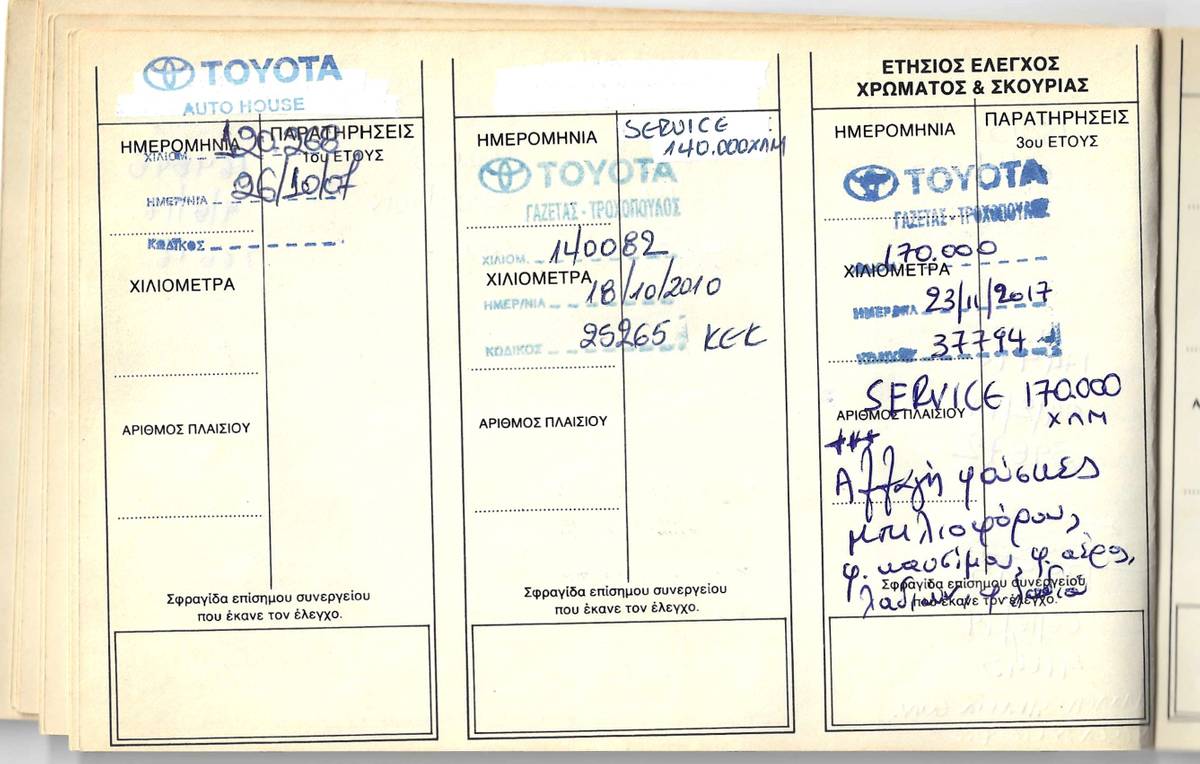 TOYOTA
AUTO HOUSE
ΗΜΕΡΟΜΗΝΙΑ
ΠΑΡΑΤΗΡΗΣΕΙΣ
1ου ΕΤΟΥΣ
ΧΙΛΙΟΜ. 120.288
ΗΜΕΡ/ΝΙΑ 26/10/07
ΚΩΔΙΚΟΣ
ΧΙΛΙΟΜΕΤΡΑ
ΑΡΙΘΜΟΣ ΠΛΑΙΣΙΟΥ
Σφραγίδα επίσημου συνεργείου
που έκανε τον έλεγχο.
ΗΜΕΡΟΜΗΝΙΑ
SERVICE
140.000ΧΛΜ
TOYOTA
ΓΑΖΕΤΑΣ - ΤΡΟΧΟΠΟΥΛΟΣ
ΧΙΛΙΟΜ. 140082
ΧΙΛΙΟΜΕΤΡΑ
ΗΜΕΡ/ΝΙΑ 18/10/2010
ΚΩΔΙΚΟΣ 25265 ΚΕΚ
ΑΡΙΘΜΟΣ ΠΛΑΙΣΙΟΥ
Σφραγίδα επίσημου συνεργείου
που έκανε τον έλεγχο.
ΕΤΗΣΙΟΣ ΕΛΕΓΧΟΣ
ΧΡΩΜΑΤΟΣ & ΣΚΟΥΡΙΑΣ
ΗΜΕΡΟΜΗΝΙΑ
ΠΑΡΑΤΗΡΗΣΕΙΣ
3ου ΕΤΟΥΣ
TOYOTA
ΓΑΖΕΤΑΣ - ΤΡΟΧΟΠΟΥΛΟΣ
170.000
ΧΙΛΙΟΜΕΤΡΑ
ΗΜΕΡ/ΝΙΑ 23/11/2017
ΚΩΔΙΚΟΣ 37794
SERVICE 170.000
ΧΛΜ
ΑΡΙΘΜΟΣ ΠΛΑΙΣΙΟΥ
***
Αλλαγή φούσκες
μπιλιοφόρου,
φ. καυσίμου, φ. αέρος,
Σφραγίδα επίσημου συνεργείου
που έκανε τον έλεγχο.